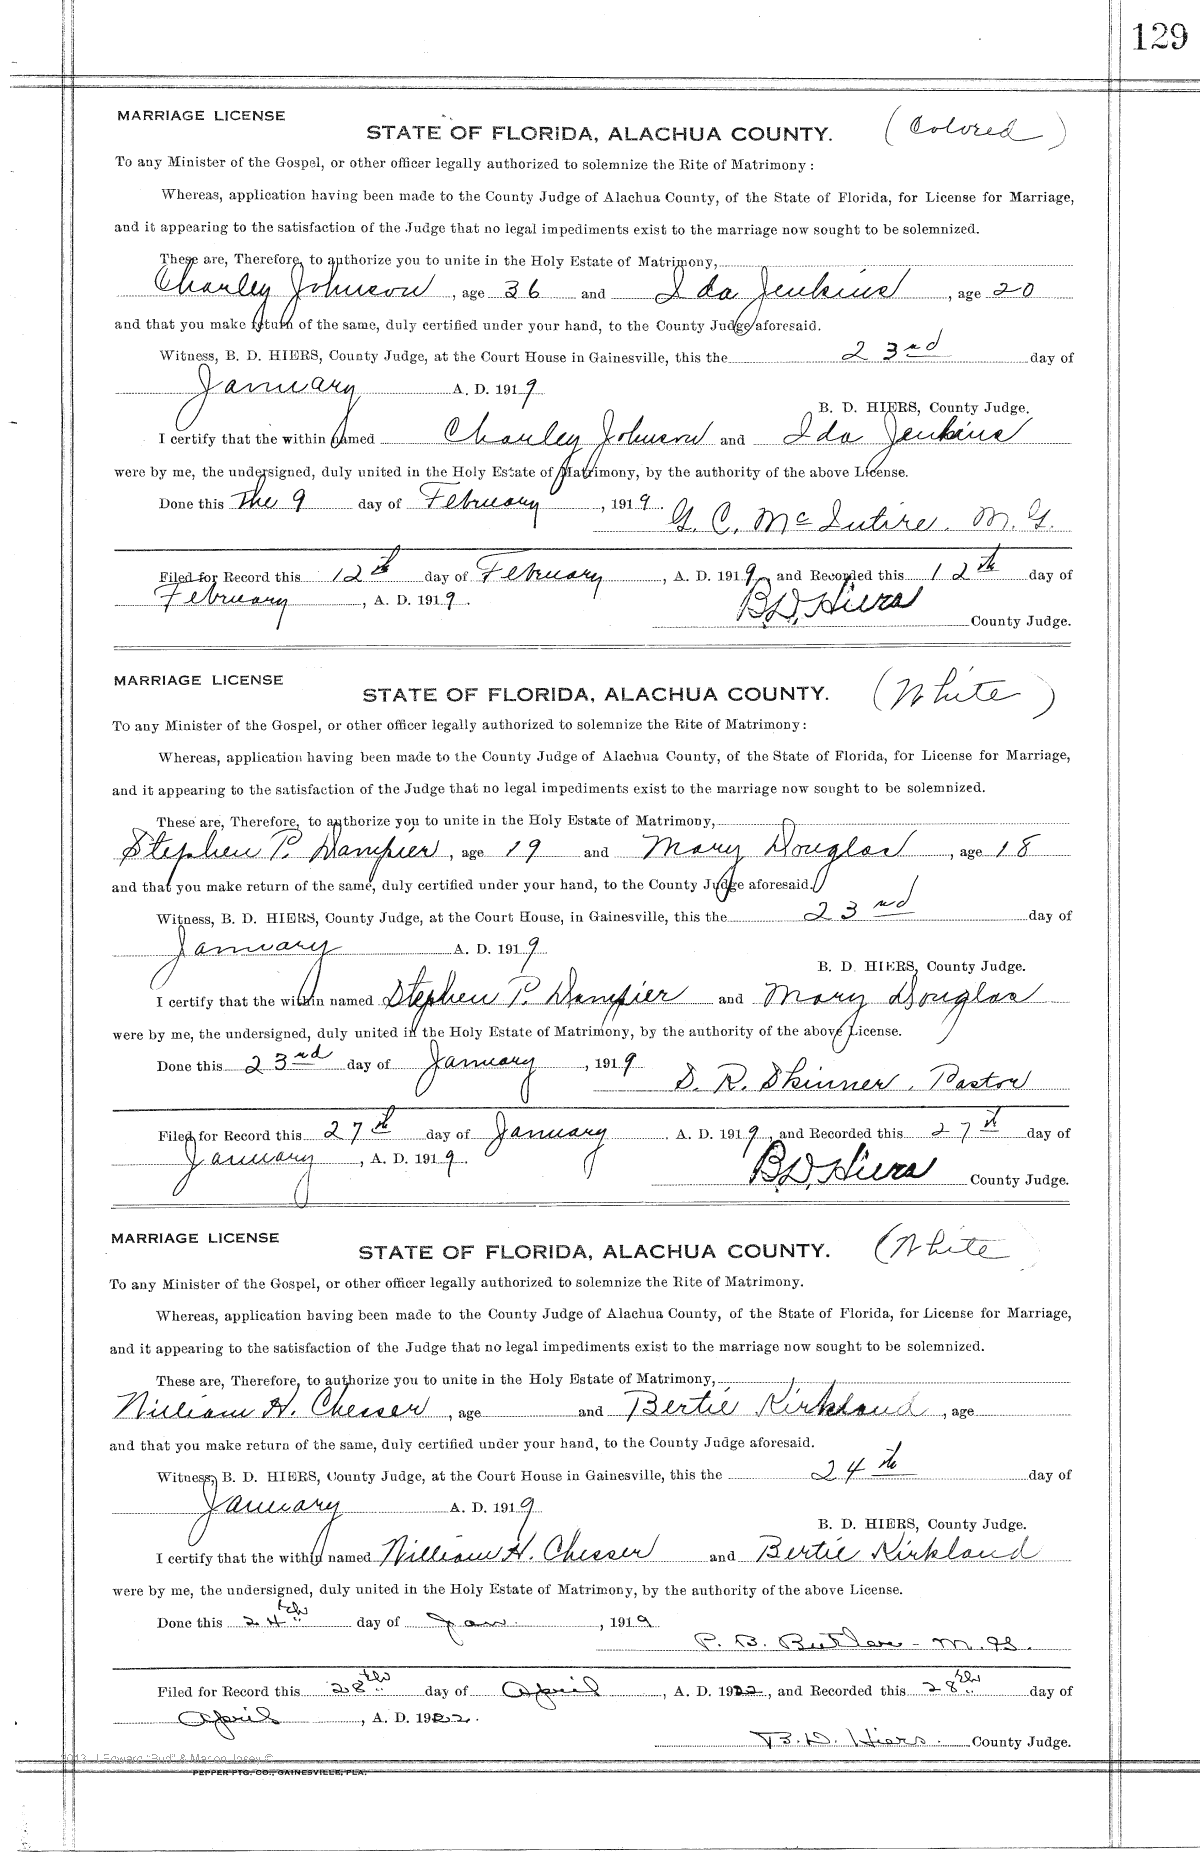 129
MARRIAGE LICENSE
STATE OF FLORIDA, ALACHUA COUNTY. (Colored)
To any Minister of the Gospel, or other officer legally authorized to solemnize the Rite of Matrimony:
Whereas, application having been made to the County Judge of Alachua County, of the State of Florida, for License for Marriage,
and it appearing to the satisfaction of the Judge that no legal impediments exist to the marriage now sought to be solemnized.
These are, Therefore, to authorize you to unite in the Holy Estate of Matrimony,
Charley Johnson, age 36 and Ida Jenkins, age 20
and that you make return of the same, duly certified under your hand, to the County Judge aforesaid.
Witness, B. D. HIERS, County Judge, at the Court House in Gainesville, this the 23rd day of
January A. D. 1919
B. D. HIERS, County Judge.
I certify that the within named Charley Johnson and Ida Jenkins
were by me, the undersigned, duly united in the Holy Estate of Matrimony, by the authority of the above License.
Done this the 9 day of February, 1919.
G. C. McIntire. M. G.
Filed for Record this 12th day of February, A. D. 1919, and Recorded this 12th day of
February, A. D. 1919.
B. D. Hiers County Judge.
MARRIAGE LICENSE
STATE OF FLORIDA, ALACHUA COUNTY. (White)
To any Minister of the Gospel, or other officer legally authorized to solemnize the Rite of Matrimony:
Whereas, application having been made to the County Judge of Alachua County, of the State of Florida, for License for Marriage,
and it appearing to the satisfaction of the Judge that no legal impediments exist to the marriage now sought to be solemnized.
These are, Therefore, to authorize you to unite in the Holy Estate of Matrimony,
Stephen P. Dampier, age 19 and Mary Douglas, age 18
and that you make return of the same, duly certified under your hand, to the County Judge aforesaid.
Witness, B. D. HIERS, County Judge, at the Court House, in Gainesville, this the 23rd day of
January A. D. 1919
B. D. HIERS, County Judge.
I certify that the within named Stephen P. Dampier and Mary Douglas
were by me, the undersigned, duly united in the Holy Estate of Matrimony, by the authority of the above License.
Done this 23rd day of January, 1919
S. R. Skinner. Pastor
Filed for Record this 27th day of January A. D. 1919, and Recorded this 27th day of
January, A. D. 1919.
B. D. Hiers County Judge.
MARRIAGE LICENSE
STATE OF FLORIDA, ALACHUA COUNTY. (White)
To any Minister of the Gospel, or other officer legally authorized to solemnize the Rite of Matrimony.
Whereas, application having been made to the County Judge of Alachua County, of the State of Florida, for License for Marriage,
and it appearing to the satisfaction of the Judge that no legal impediments exist to the marriage now sought to be solemnized.
These are, Therefore, to authorize you to unite in the Holy Estate of Matrimony,
William H. Chesser, age and Bertie Kirkland, age
and that you make return of the same, duly certified under your hand, to the County Judge aforesaid.
Witness, B. D. HIERS, County Judge, at the Court House in Gainesville, this the 24th day of
January A. D. 1919
B. D. HIERS, County Judge.
I certify that the within named William H. Chesser and Bertie Kirkland
were by me, the undersigned, duly united in the Holy Estate of Matrimony, by the authority of the above License.
Done this 24th day of Jan., 1919
P. B. Butler - M. G.
Filed for Record this 28th day of April, A. D. 1922, and Recorded this 28th day of
April, A. D. 1922.
B. D. Hiers. County Judge.
2013 J Edward "Bud" & Marion Josey ©
PEPPER PTG. CO., GAINESVILLE, FLA.